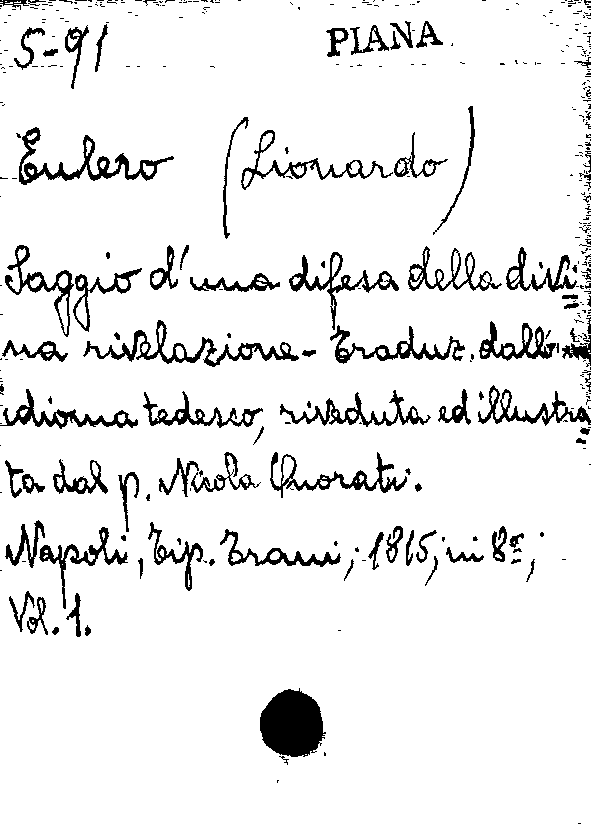 S-91 PIANA
Eulero (Lionardo)
Saggio d'una difesa della divi=
na rivelazione - Traduz. dall'
idioma tedesco, riveduta ed illustra=
ta dal p. Nicola Onorati.
Napoli, Tip. Trani; 1815; in 8º;
Vol. 1.